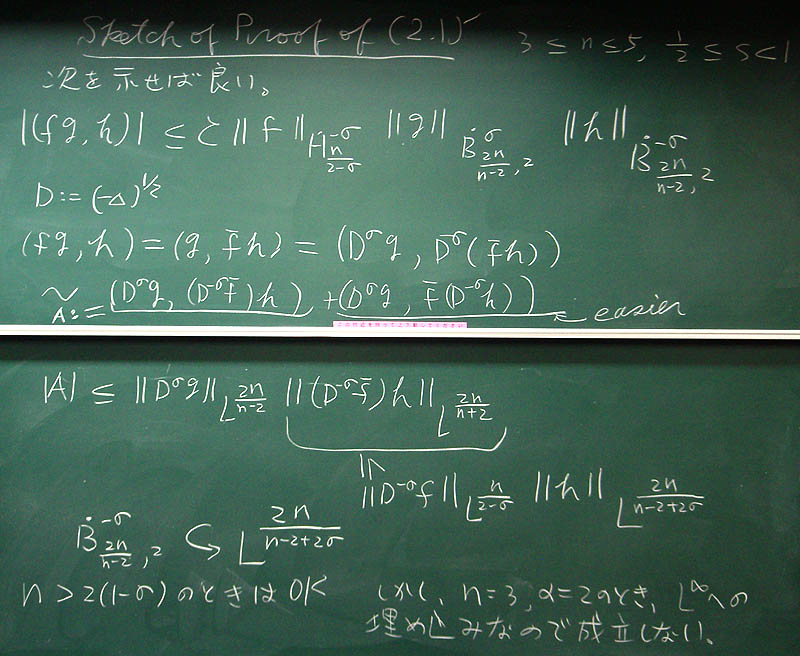 Sketch of Proof of (2.1)' 3 ≤ n ≤ 5, 1/2 ≤ s < 1
次を示せば良い。
|(fg, h)| ≤ C ‖f‖_{Ḣ^{-σ}_{n/(2-σ)}} ‖g‖_{Ḃ^{σ}_{2n/(n-2), 2}} ‖h‖_{Ḃ^{-σ}_{2n/(n-2), 2}}
D := (-Δ)^{1/2}
(fg, h) = (g, f̄h) = (D^σ g, D^{-σ}(f̄h))
~ (D^σ g, (D^{-σ} f̄)h) + (D^σ g, f̄(D^{-σ} h)) ← easier
A :=
|A| ≤ ‖D^σ g‖_{L^{2n/(n-2)}} ‖(D^{-σ} f̄)h‖_{L^{2n/(n+2)}}
‖D^{-σ} f‖_{L^{n/(2-σ)}} ‖h‖_{L^{2n/(n-2+2σ)}}
Ḃ^{-σ}_{2n/(n-2), 2} ↪ L^{2n/(n-2+2σ)}
n > 2(1-σ) のときは OK
しかし、n = 3, α = 2のとき、L^∞への
埋めこみなので成立しない。